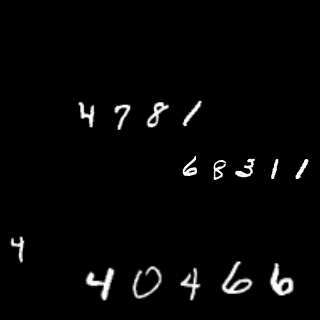 4781
68311
4
40466